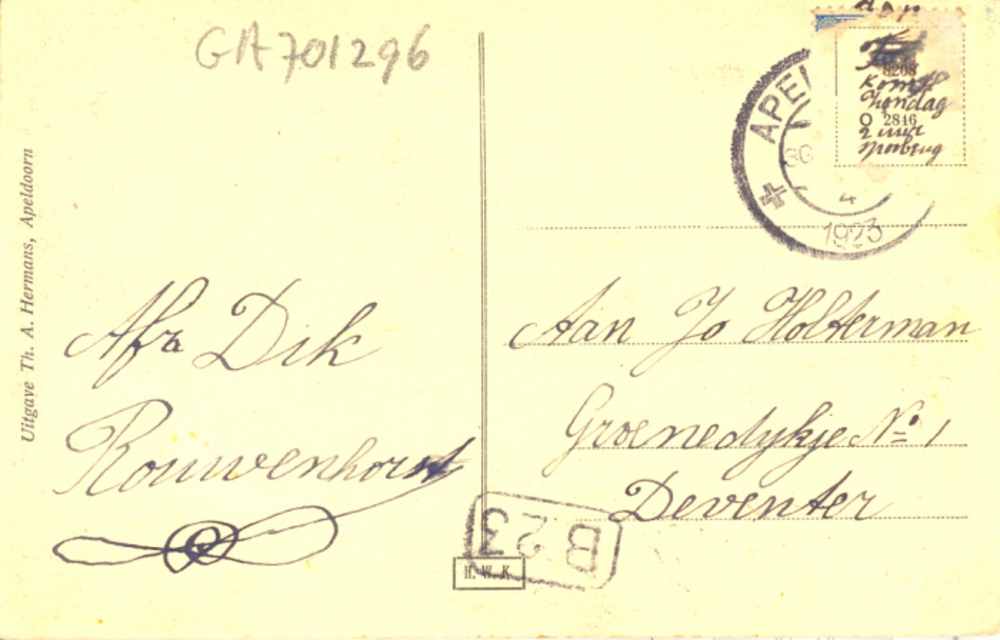 GA701296
Uitgave Th. A. Hermans, Apeldoorn
Afz Dik
Rouwenhorst
APEL
30
4
1923
8208
Komt
Zondag
O 2816
2 uur
Aan Jo Holterman
Groenedykje No 1
Deventer
B 23
H. W. K.